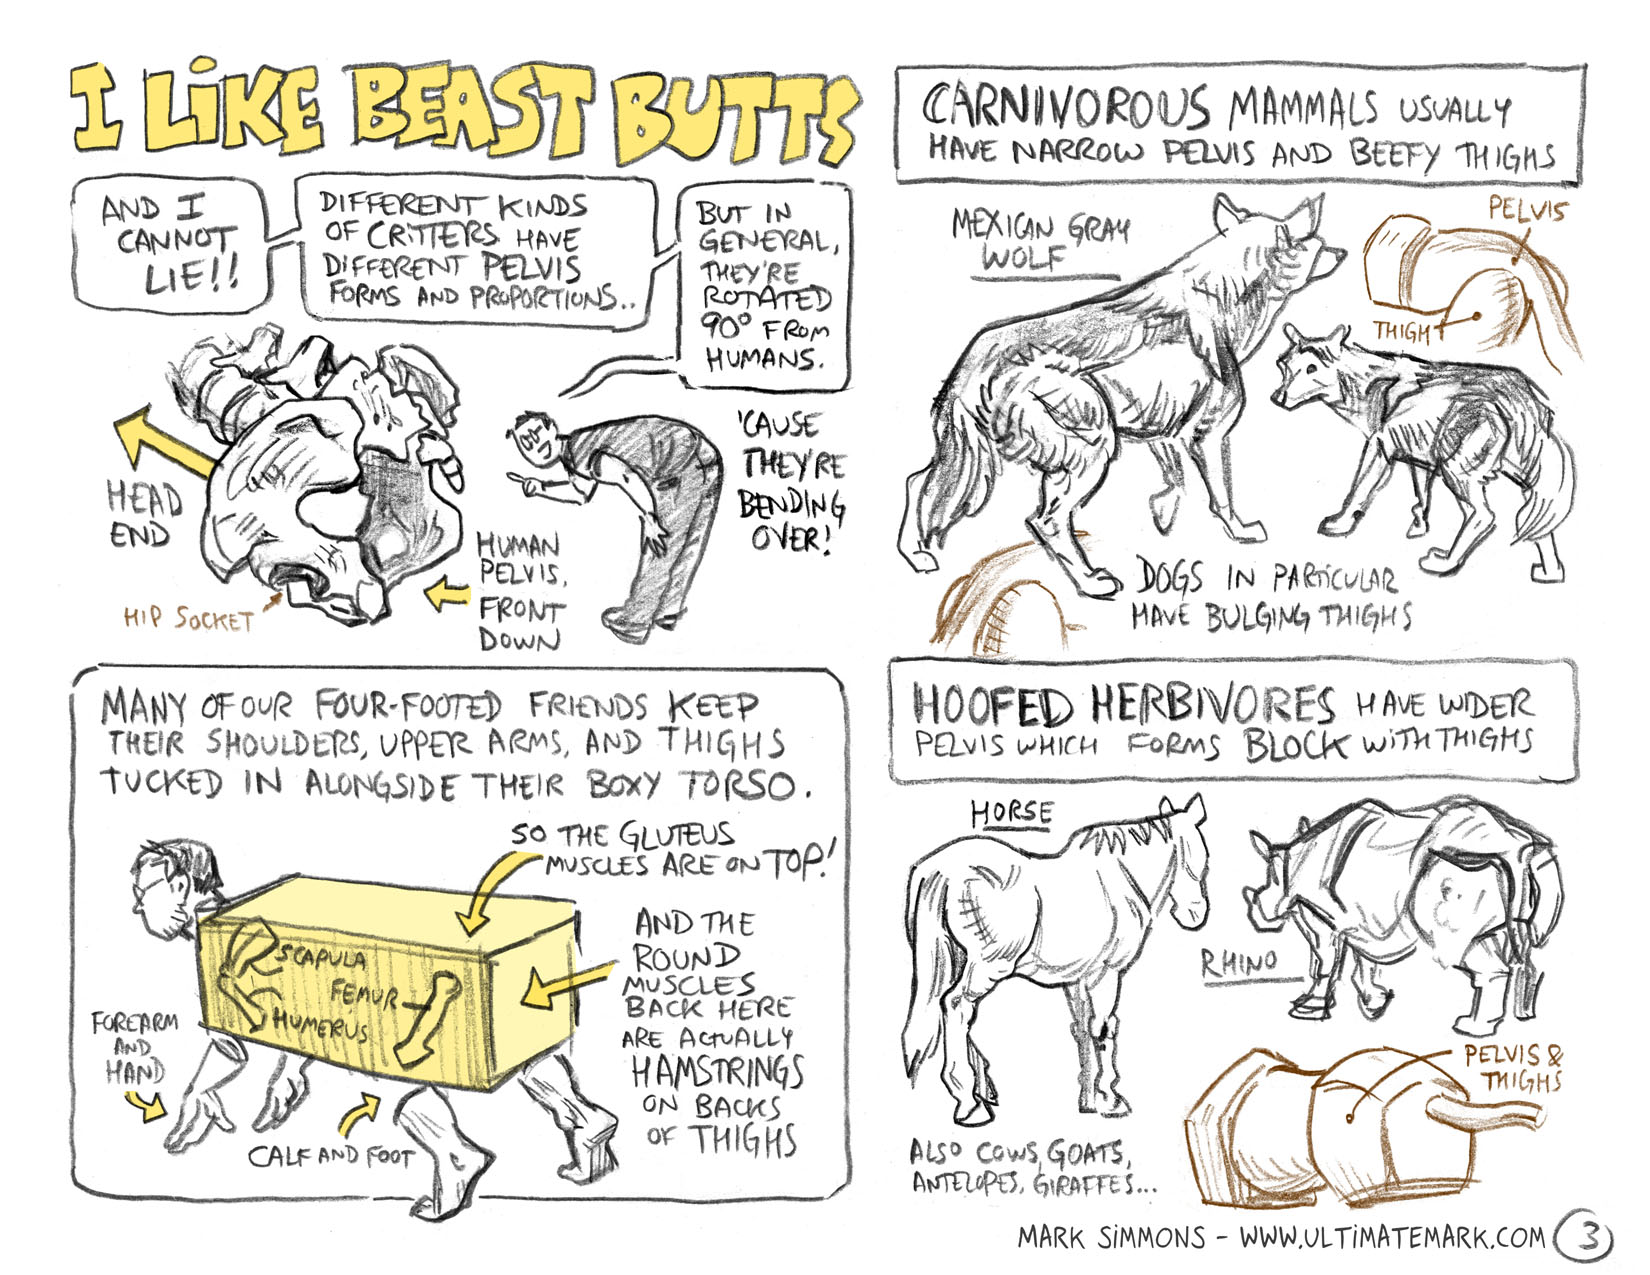 I LIKE BEAST BUTTS
AND I
CANNOT
LIE!!
DIFFERENT KINDS
OF CRITTERS HAVE
DIFFERENT PELVIS
FORMS AND PROPORTIONS..
BUT IN
GENERAL,
THEY'RE
ROTATED
90° FROM
HUMANS.
'CAUSE
THEY'RE
BENDING
OVER!
HEAD
END
HIP SOCKET
HUMAN
PELVIS,
FRONT
DOWN
MANY OF OUR FOUR-FOOTED FRIENDS KEEP
THEIR SHOULDERS, UPPER ARMS, AND THIGHS
TUCKED IN ALONGSIDE THEIR BOXY TORSO.
SO THE GLUTEUS
MUSCLES ARE ON TOP!
AND THE
ROUND
MUSCLES
BACK HERE
ARE ACTUALLY
HAMSTRINGS
ON BACKS
OF THIGHS
SCAPULA
FEMUR
HUMERUS
FOREARM
AND
HAND
CALF AND FOOT
CARNIVOROUS MAMMALS USUALLY
HAVE NARROW PELVIS AND BEEFY THIGHS
MEXICAN GRAY
WOLF
PELVIS
THIGH
DOGS IN PARTICULAR
HAVE BULGING THIGHS
HOOFED HERBIVORES HAVE WIDER
PELVIS WHICH FORMS BLOCK WITH THIGHS
HORSE
RHINO
PELVIS &
THIGHS
ALSO COWS, GOATS,
ANTELOPES, GIRAFFES...
MARK SIMMONS - WWW.ULTIMATEMARK.COM 3